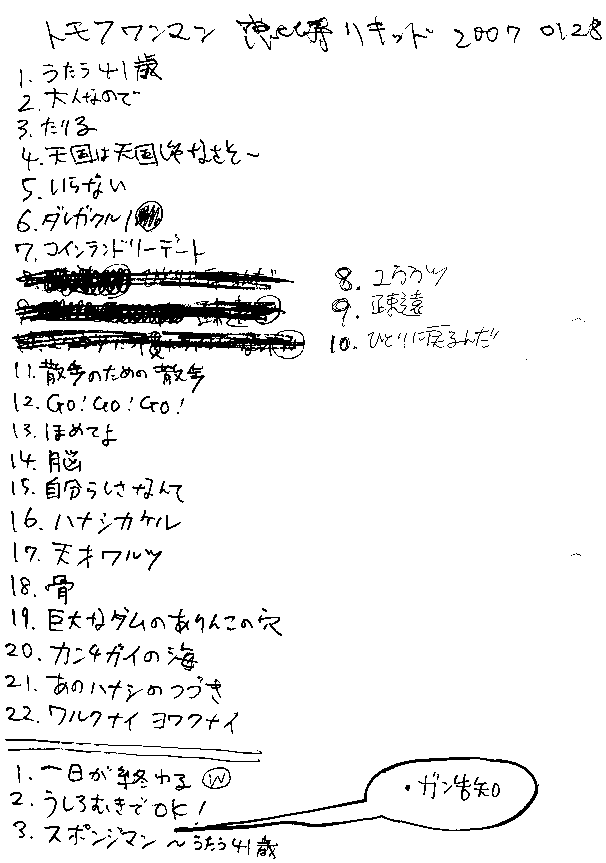 トモフワンマン 恵比寿リキッド 2007 0128
1. うたう41歳
2. 大人なので
3. たりる
4. 天国は天国じゃなさそ〜
5. いらない
6. ダレガクル!
7. コインランドリーデート
8. ユウウツ
9. 疎遠
10. ひとりに戻るんだ
11. 散歩のための散歩
12. GO! GO! GO!
13. ほめてよ
14. 脳
15. 自分らしさなんて
16. ハナシカケル
17. 天才ワルツ
18. 骨
19. 巨大なダムのありんこの穴
20. カンチガイの海
21. あのハナシのつづき
22. ワルクナイ ヨワクナイ
1. 一日が終わる
2. うしろむきでOK!
3. スポンジマン 〜うたう41歳
・ガン告知